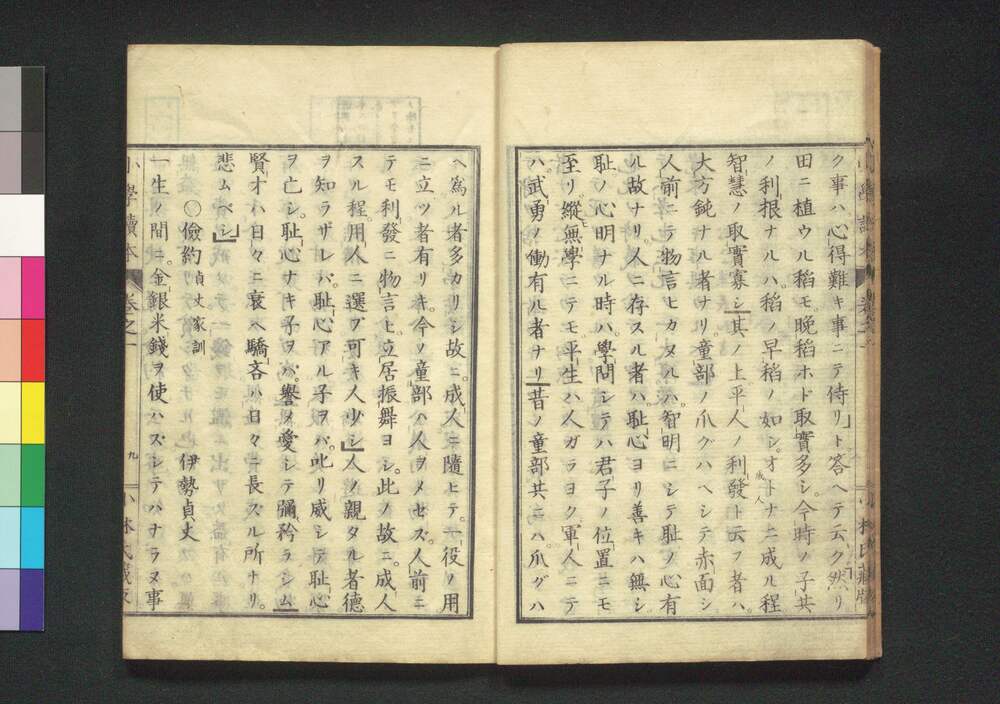 ク事ハ、心得難キ事ニテ侍リ」ト答ヘテ云ク「然リ
田ニ植ウル稻モ。晩稻ホド取實多シ。今時ノ子共
ノ利根ナルハ稻ノ早稻ノ如シ。オトナニ成ル程
成人
智慧ノ取實寡シ」其ノ上平人ノ利發ト云フ者ハ。
大方鈍ナル者ナリ。童部ノ爪クハヘシテ赤面シ
人前ニテ物言ヒカヌルハ。智明ニシテ恥ノ心有
ル故ナリ。人ニ存スル者ハ。恥心ヨリ善キハ無シ
恥ノ心明ナル時ハ。學問シテハ君子ノ位置ニモ
至リ縱無學ニテモ。平生ハ人ガラヨク軍人ニテ
モ
ハ。武勇ノ働有ル者ナリ」昔ノ童部共ニハ。爪グハ
小林氏藏版
ヘ爲ル者多カリシ故ニ。成人ニ隨ヒテ。一役ノ用
ニ立ツ者有リキ。今ノ童部ハ人ヲメセズ。人前ニ
テモ利發ニ物言ヒ。立居振舞ヨシ。此ノ故ニ。成人
スル程。用人ニ選ブ可キ人少シ」人ノ親タル者德
ヲ知ラザレバ。恥心アル子ヲバ。叱リ威シテ恥心
ヲ亡シ。恥心ナキ子ヲバ。譽メ愛シテ彌矜ラシム
賢才ハ日々ニ衰ヘ驕吝ハ日々ニ長スル所ナリ。
悲ムベシ」
〇儉約 貞丈家訓 伊勢貞丈
一生ノ間ニ。金銀米錢ヲ使ハズシテハナラヌ事
小學讀本 卷之一 九 小林氏藏版